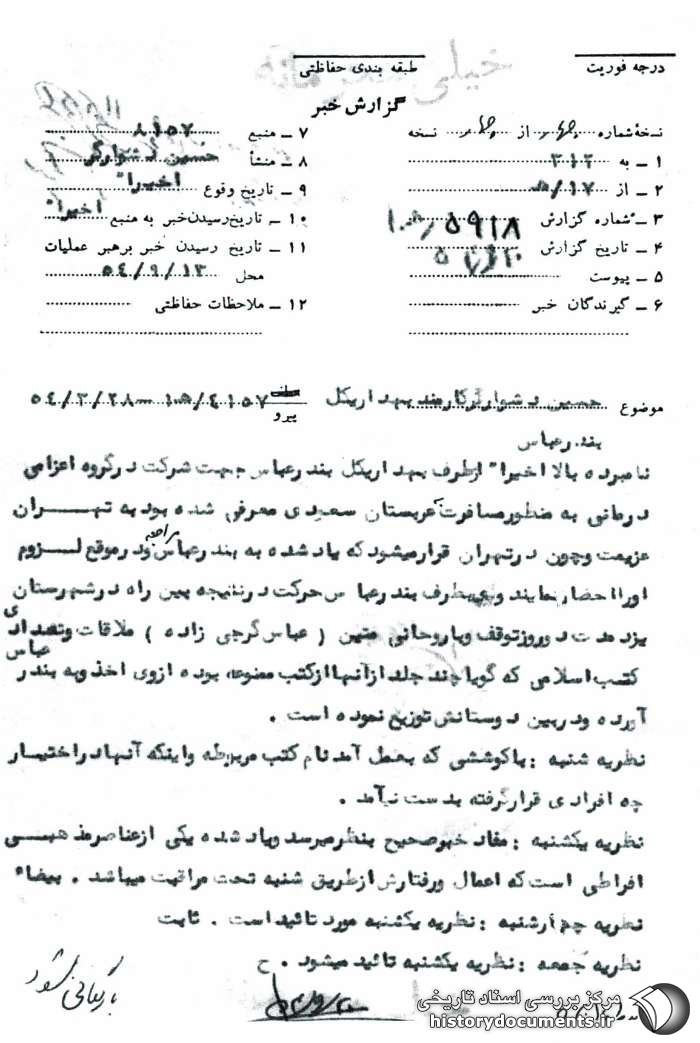 درجه فوریت
طبقه بندی حفاظتی
خیلی محرمانه
گزارش خبر
نسخهٔ شماره از نسخه
۱ ــ به ۳۱۲
۲ ــ از ۱۷/ﻫ
۳ ــ شماره گزارش ۵۹۱۸
۴ ــ تاریخ گزارش
۵ ــ پیوست
۶ ــ گیرندگان خبر
۷ ــ منبع ۸۱۵۷
۸ ــ منشأ حسین دشوارگر
۹ ــ تاریخ وقوع اخیرا"
۱۰ ــ تاریخ رسیدن خبر به منبع اخیرا"
۱۱ ــ تاریخ رسیدن خبر برهبر عملیات
محل ۵۴/۹/۱۳
۱۲ ــ ملاحظات حفاظتی
موضوع حسین دشوارگر کارمند بهداریکل
بندرعباس
پیرو ۴۱۵۷/ﻫ۱ - ۵۴/۳/۲۸
نامبرده بالا اخیرا" ازطرف بهداریکل بندرعباس جهت شرکت درگروه اعزامی
درمانی به منظورمسافرت عربستان سعودی معرفی شده بود به تهران
عزیمت وچون درتهران قرارمیشود که یاد شده به بندرعباس مراجعه ودرموقع لزوم
اورااحضارنمایند وی بطرف بندرعباس حرکت درنتیجه بین راه درشهرستان
یزد مدت دوروزتوقف وباروحانی متین ( عباس گرجی زاده ) ملاقات وتعدادی
کتب اسلامی که گویا چند جلد ازآنها ازکتب ممنوعه بوده ازوی اخذ وبه بندر عباس
آورده ودربین دوستانش توزیع نموده است .
نظریه شنبه : باکوششی که بعمل آمد نام کتب مربوطه واینکه آنها دراختیار
چه افرادی قرارگرفته بدست نیآمد .
نظریه یکشنبه : مفاد خبرصحیح بنظرمیرسد ویاد شده یکی ازعناصرمذهبی
افراطی است که اعمال ورفتارش ازطریق شنبه تحت مراقبت میباشد . بیضاء
نظریه چهارشنبه : نظریه یکشنبه مورد تائید است . ثابت
نظریه جمعه : نظریه یکشنبه تائید میشود . ح
بایگانی شود
مرکز بررسی اسناد تاریخی
historydocuments.ir